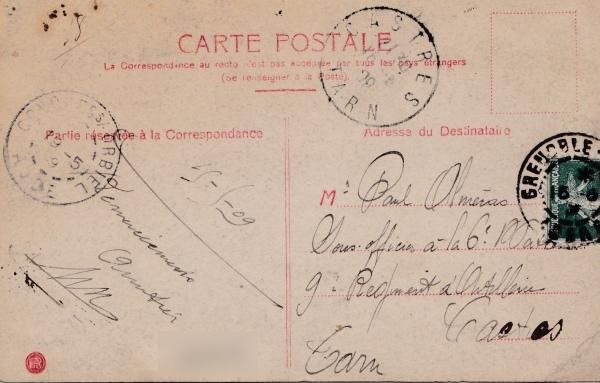 CARTE POSTALE
La Correspondance au recto n'est pas acceptée par tous les pays étrangers
(Se renseigner à la Poste).
CASTRES
TARN
Partie réservée à la Correspondance
Adresse du Destinataire
GRENOBLE
15-5-09
Remerciements
M. Paul Alméras
Sous-officier à la 6e
9e Régiment d'Artillerie
Castres
Tarn